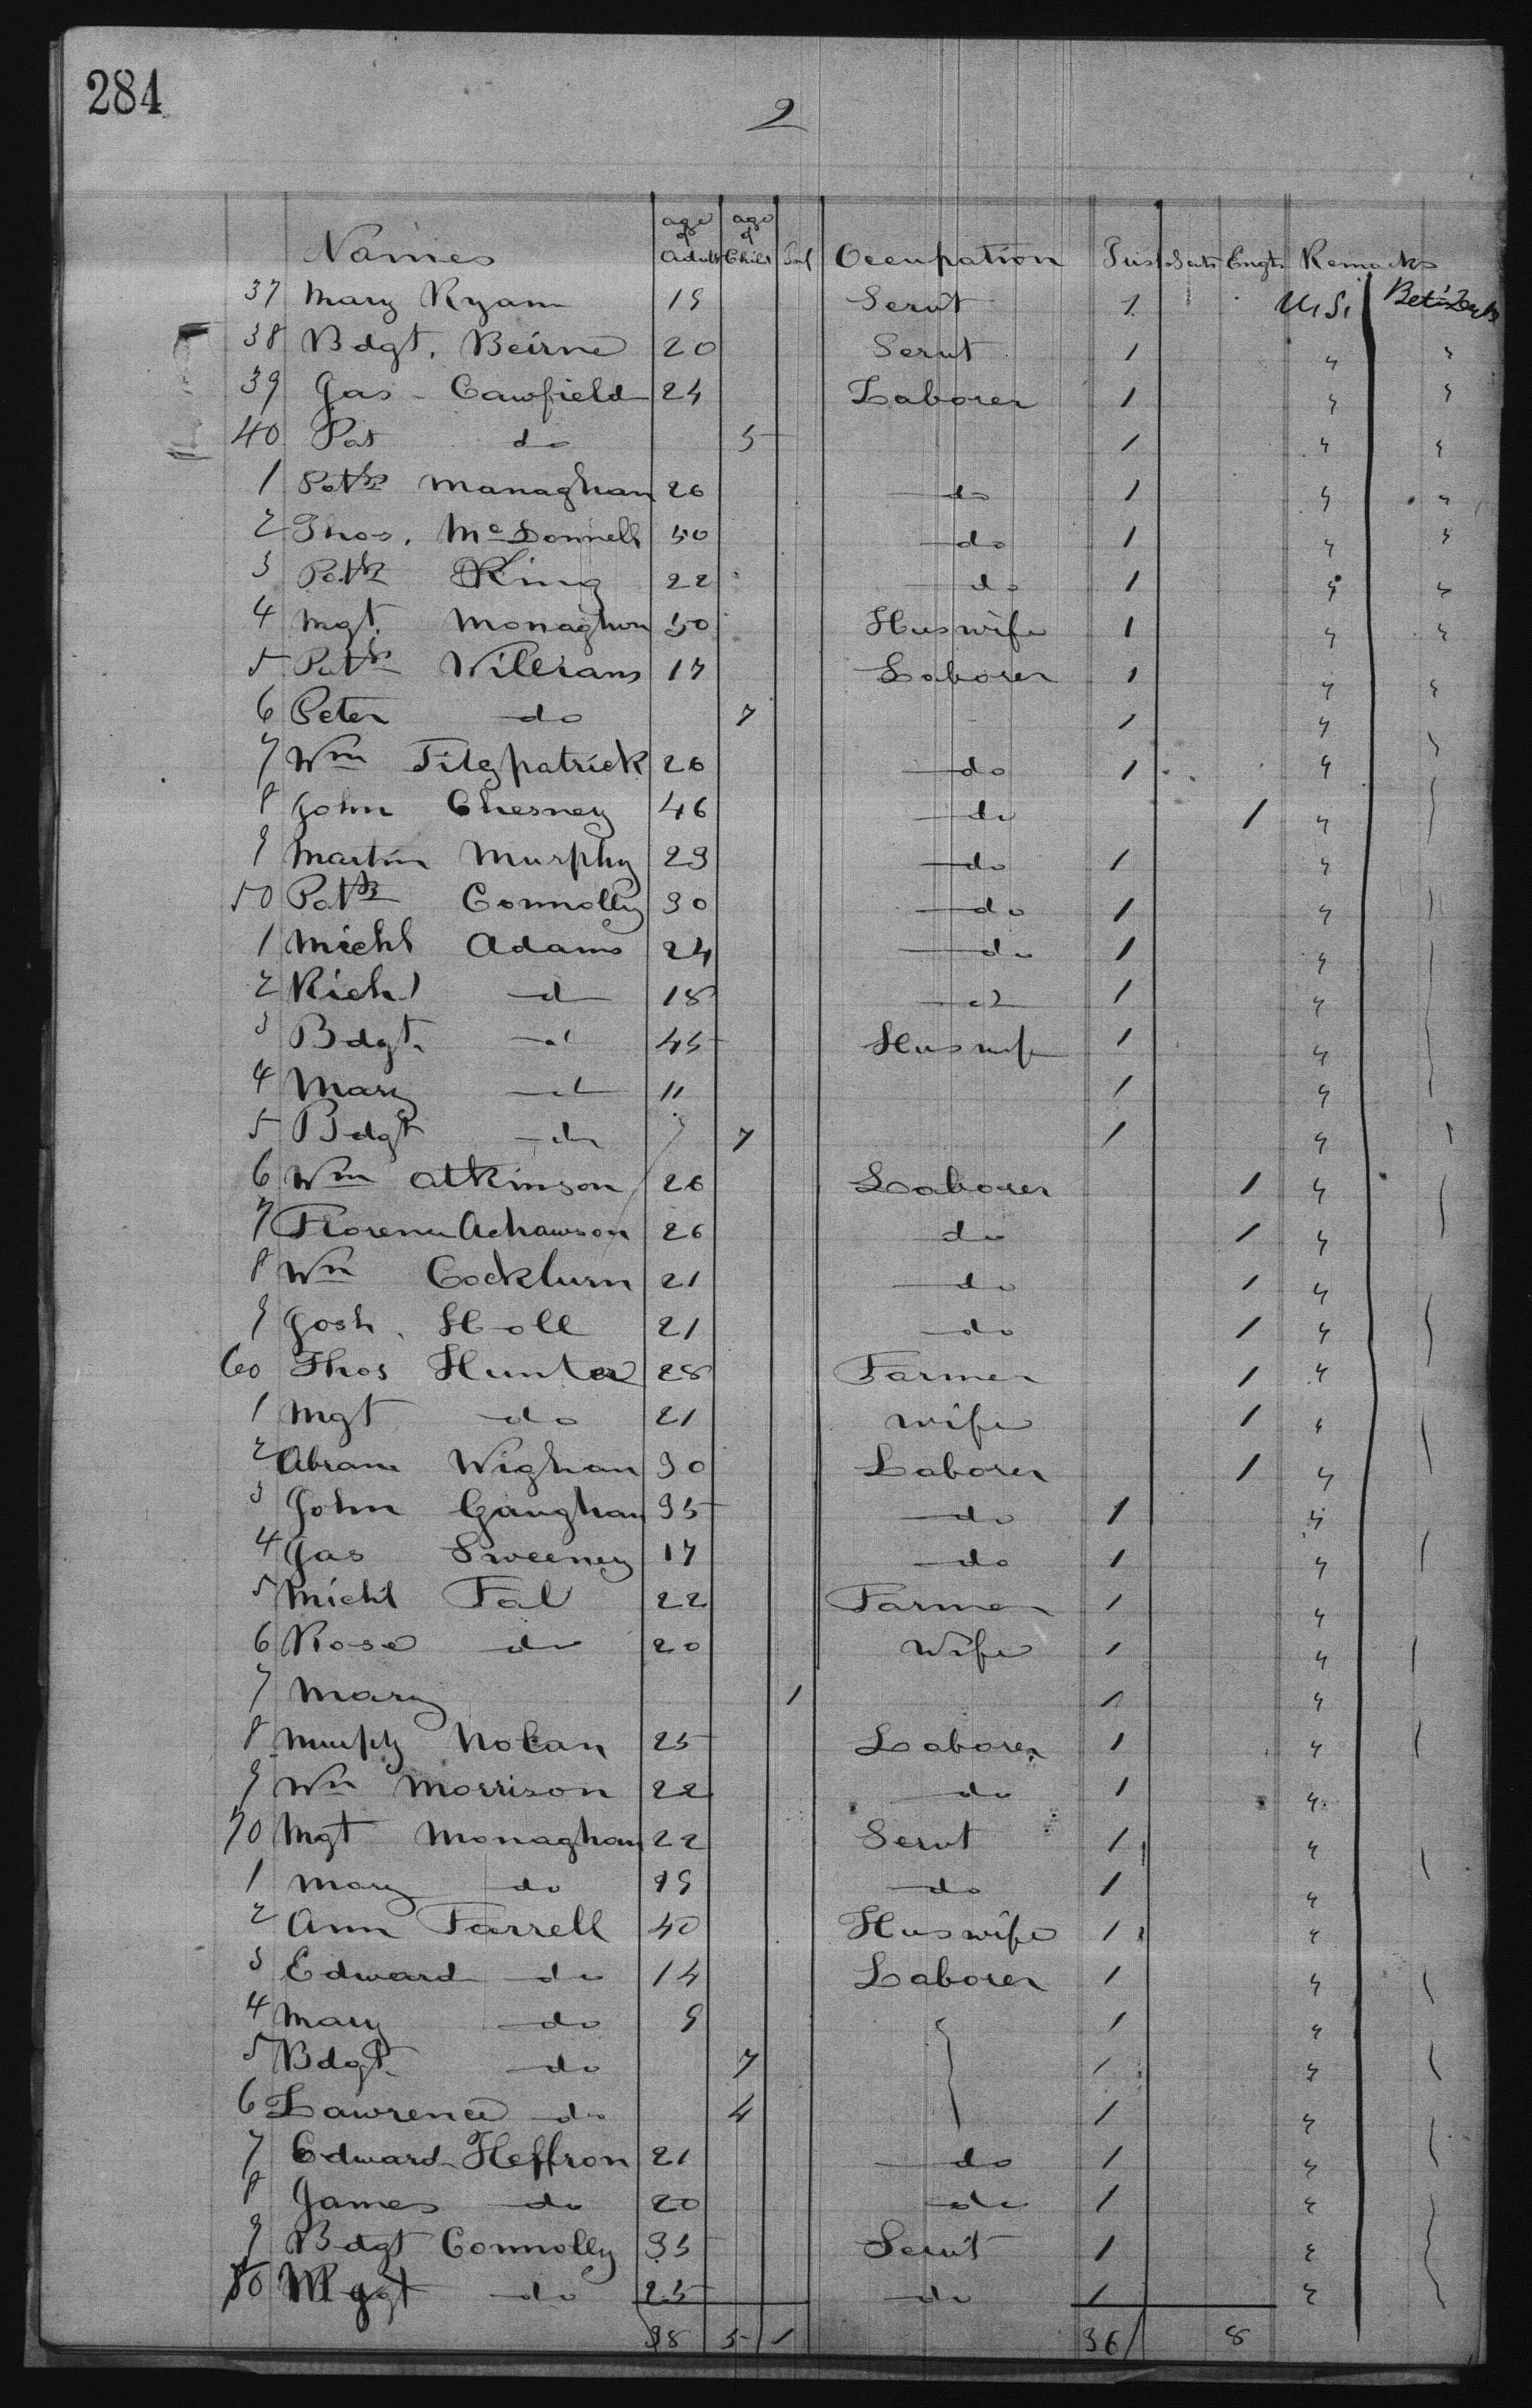 284
2
Names age of Adults age of Child Inf Occupation Irish Scots Engts Remarks
37 Mary Ryan 19 Servt 1 U.S.
38 Bdgt. Beirne 20 Servt 1 "
39 Jas - Cawfield 24 Laborer 1 " "
40 Pat do 5 1 " "
1 Patk Managhan 26 do 1 " "
2 Thos. McDonnell 50 do 1 " "
3 Patk King 22 do 1 " "
4 Mgt. Monaghan 50 Huswife 1 " "
5 Patk Willians 17 Laborer 1 " "
6 Peter do 7 1 "
7 Wm Fitzpatrick 26 do 1 "
8 John Chesney 46 do 1 "
9 Martin Murphy 29 do 1 "
50 Patk Connolly 30 do 1 "
1 Michl Adams 24 do 1 "
2 Richd do 18 do 1 "
3 Bdgt. do 45 Huswife 1 "
4 Mary do 11 1 "
5 Bdgt do 7 1 "
6 Wm Atkinson 26 Laborer 1 "
7 Florence 26 do 1 "
8 Wm Cockburn 21 do 1 "
9 Josh. Holl 21 do 1 "
60 Thos Hunter 28 Farmer 1 "
1 Mgt do 21 Wife 1 "
2 Abram Wighan 30 Laborer 1 "
3 John Gaughan 35 do 1 "
4 Jas Sweeney 17 do 1 "
5 Michl Fal 22 Farmer 1 "
6 Rose do 20 Wife 1 "
7 Mary 1 1 "
8 Murphy Nolan 25 Laborer 1 "
9 Wm Morrison 22 do 1 "
70 Mgt Monaghan 22 Servt 1 "
1 Mary do 19 do 1 "
2 Ann Farrell 40 Huswife 1 "
3 Edward do 14 Laborer 1 "
4 Mary do 9 1 "
5 Bdgt. do 7 1 "
6 Lawrence do 4 1 "
7 Edward Heffron 21 do 1 "
8 James do 20 do 1 "
9 Bdgt Connolly 35 Servt 1 "
80 Mgt do 25 do 1 "
38 5 1 36 8